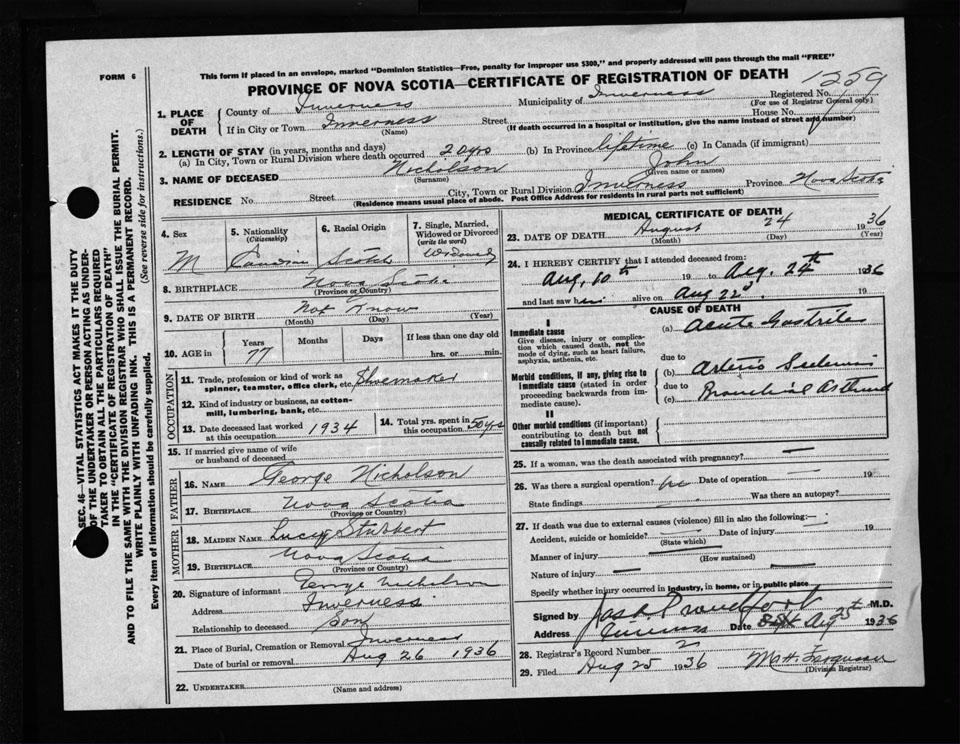 FORM 6
This form if placed in an envelope, marked "Dominion Statistics—Free, penalty for improper use $300," and properly addressed will pass through the mail "FREE"
PROVINCE OF NOVA SCOTIA—CERTIFICATE OF REGISTRATION OF DEATH
1259
Registered No.
(For use of Registrar General only)
1. PLACE OF DEATH
County of Inverness
Municipality of Inverness
If in City or Town Inverness
(Name)
Street
House No.
(If death occurred in a hospital or institution, give the name instead of street and number)
2. LENGTH OF STAY (in years, months and days)
(a) In City, Town or Rural Division where death occurred 20 yrs (b) In Province lifetime (c) In Canada (if immigrant)
3. NAME OF DECEASED Nicholson John
(Surname) (Given name or names)
RESIDENCE No. Street City, Town or Rural Division Inverness Province Nova Scotia
(Residence means usual place of abode. Post Office Address for residents in rural parts not sufficient)
4. Sex M
5. Nationality (Citizenship)
6. Racial Origin Scotch
7. Single, Married, Widowed or Divorced (write the word) Widowed
8. BIRTHPLACE Nova Scotia
(Province or Country)
9. DATE OF BIRTH Not Know
(Month) (Day) (Year)
10. AGE in Years Months Days If less than one day old
77 hrs. or min.
OCCUPATION
11. Trade, profession or kind of work as spinner, teamster, office clerk, etc. Shoemaker
12. Kind of industry or business, as cotton-mill, lumbering, bank, etc.
13. Date deceased last worked at this occupation 1934
14. Total yrs. spent in this occupation 50 yrs
15. If married give name of wife or husband of deceased
FATHER
16. Name George Nicholson
17. Birthplace Nova Scotia
(Province or Country)
MOTHER
18. Maiden Name Lucy Stubbert
19. Birthplace Nova Scotia
(Province or Country)
20. Signature of informant George Nicholson
Address Inverness
Relationship to deceased son
21. Place of Burial, Cremation or Removal Inverness
Date of burial or removal Aug 26 1936
22. UNDERTAKER
(Name and address)
MEDICAL CERTIFICATE OF DEATH
23. DATE OF DEATH August 24 1936
(Month) (Day) (Year)
24. I HEREBY CERTIFY that I attended deceased from:
Aug, 10th 19 to Aug. 24th 1936
and last saw him alive on Aug 22d. 19
CAUSE OF DEATH
I
Immediate cause
Give disease, injury or complication which caused death, not the mode of dying, such as heart failure, asphyxia, asthenia, etc.
(a) Acute Gastritis
due to
Morbid conditions, if any, giving rise to immediate cause (stated in order proceeding backwards from immediate cause).
(b) Arterio
due to
(c) Bronchial Asthma
II
Other morbid conditions (if important) contributing to death but not causally related to immediate cause.
25. If a woman, was the death associated with pregnancy? —
26. Was there a surgical operation? no Date of operation 19
State findings Was there an autopsy?
27. If death was due to external causes (violence) fill in also the following:—
Accident, suicide or homicide? Date of injury 19
(State which)
Manner of injury
(How sustained)
Nature of injury —
Specify whether injury occurred in industry, in home, or in public place
Signed by M.D.
Address Inverness Date Aug 25th 1936
28. Registrar's Record Number 2
29. Filed Aug 25 1936 Ferguson
(Division Registrar)
SEC. 46—VITAL STATISTICS ACT MAKES IT THE DUTY
OF THE UNDERTAKER OR PERSON ACTING AS UNDER-
TAKER TO OBTAIN ALL THE PARTICULARS REQUIRED
IN THE "CERTIFICATE OF REGISTRATION OF DEATH"
AND TO FILE THE SAME WITH THE DIVISION REGISTRAR WHO SHALL ISSUE THE BURIAL PERMIT.
WRITE PLAINLY WITH UNFADING INK. THIS IS A PERMANENT RECORD.
Every item of information should be carefully supplied. (See reverse side for instructions.)